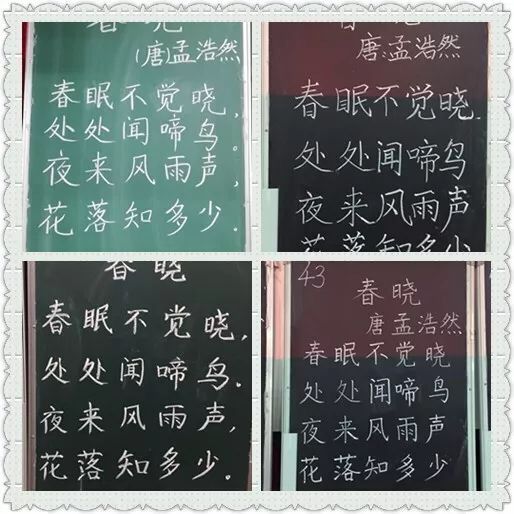 春晓
(唐)孟浩然
春眠不觉晓,
处处闻啼鸟。
夜来风雨声,
花落知多少.
春晓
唐:孟浩然
春眠不觉晓.
处处闻啼鸟
夜来风雨声
花落知多少
春晓
春眠不觉晓,
处处闻啼鸟.
夜来风雨声,
花落知多少.
43
春晓
唐孟浩然
春眠不觉晓
处处闻啼鸟
夜来风雨声
花落知多少